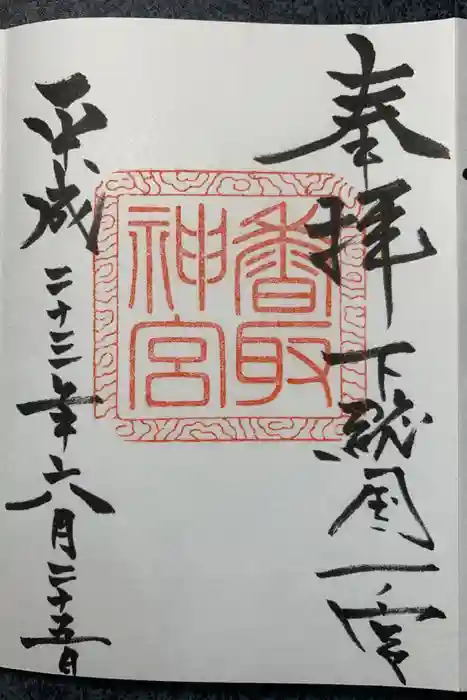 奉拝 下総国一宮
香取
神宮
平成二十三年六月二十五日